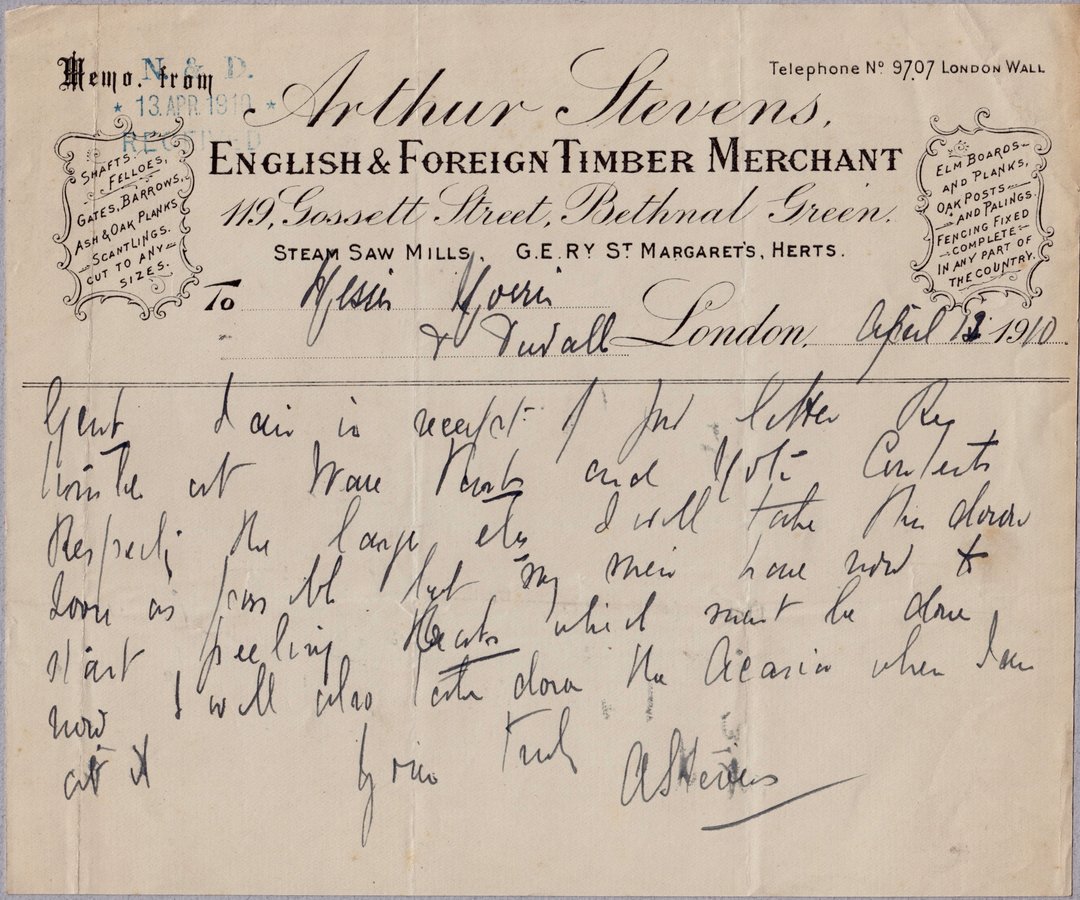 Memo. from
N. & D.
* 13 APR. 1910 *
RECEIVED
Telephone No 9707 LONDON WALL
Arthur Stevens,
ENGLISH & FOREIGN TIMBER MERCHANT
119, Gossett Street, Bethnal Green.
STEAM SAW MILLS, G.E.RY ST MARGARET'S, HERTS.
SHAFTS.
FELLOES,
GATES, BARROWS,
ASH & OAK PLANKS
SCANTLINGS.
CUT TO ANY
SIZES.
ELM BOARDS
AND PLANKS,
OAK POSTS
AND PALINGS.
FENCING FIXED
COMPLETE
IN ANY PART OF
THE COUNTRY.
To Messrs
&
London, April 13 1910.
Gent I am in receipt of letter Re
at Ware and Contents
the large I will take down
Soon as possible but my men have now to
start peeling which must be done
now I will also down the Acasia when I am
at it
Truly
A Stevens